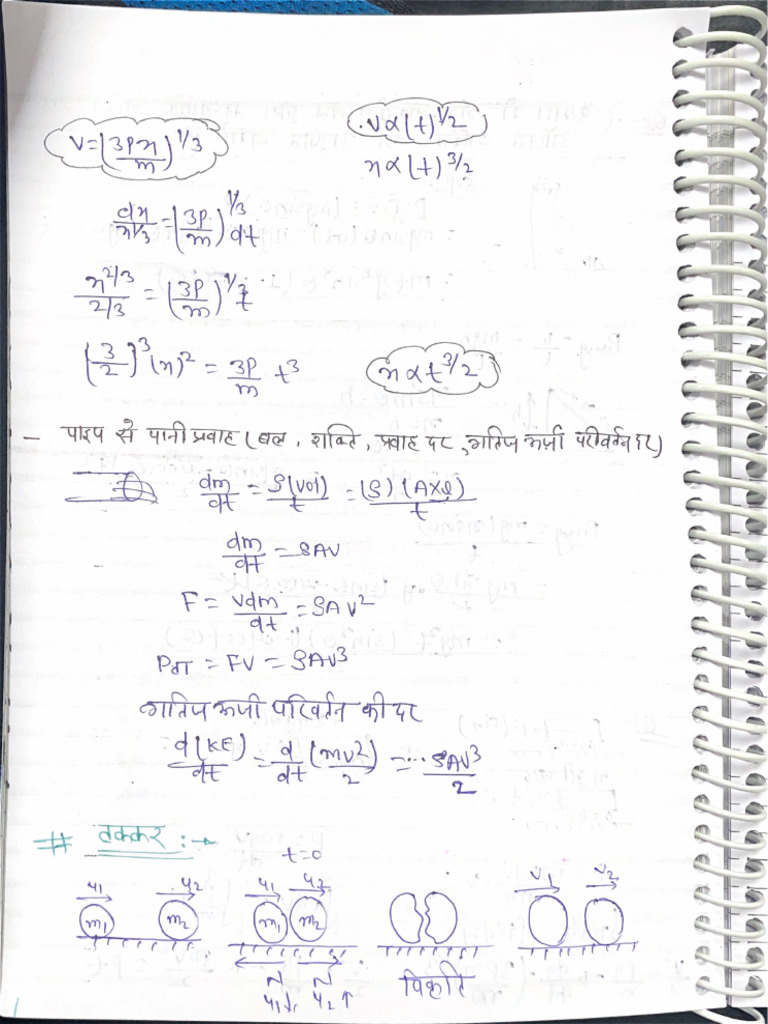 v = (3Px/m)^1/3
v ∝ (t)^1/2
x ∝ (t)^3/2
dx/x^1/3 = (3P/m)^1/3 dt
x^2/3 / 2/3 = (3P/m)^1/3 t
(3/2)^3 (x)^2 = 3P/m t^3
x ∝ t^3/2
– पाइप से पानी प्रवाह (बल, शक्ति, प्रवाह दर, गतिज ऊर्जा परिवर्तन दर)
dm/dt = ρ(vol)/t = (ρ)(A×l)/t
dm/dt = ρAv
F = vdm/dt = ρAv²
= Fv = ρAv³
गतिज ऊर्जा परिवर्तन की दर
d(KE)/dt = d/dt (mv²/2) = ρAv³/2
# टक्कर :→
t=0
u1 u2 u1 u2 v1 v2
m1 m2 m1 m2
N N
u1↓ u2↑
विकृति